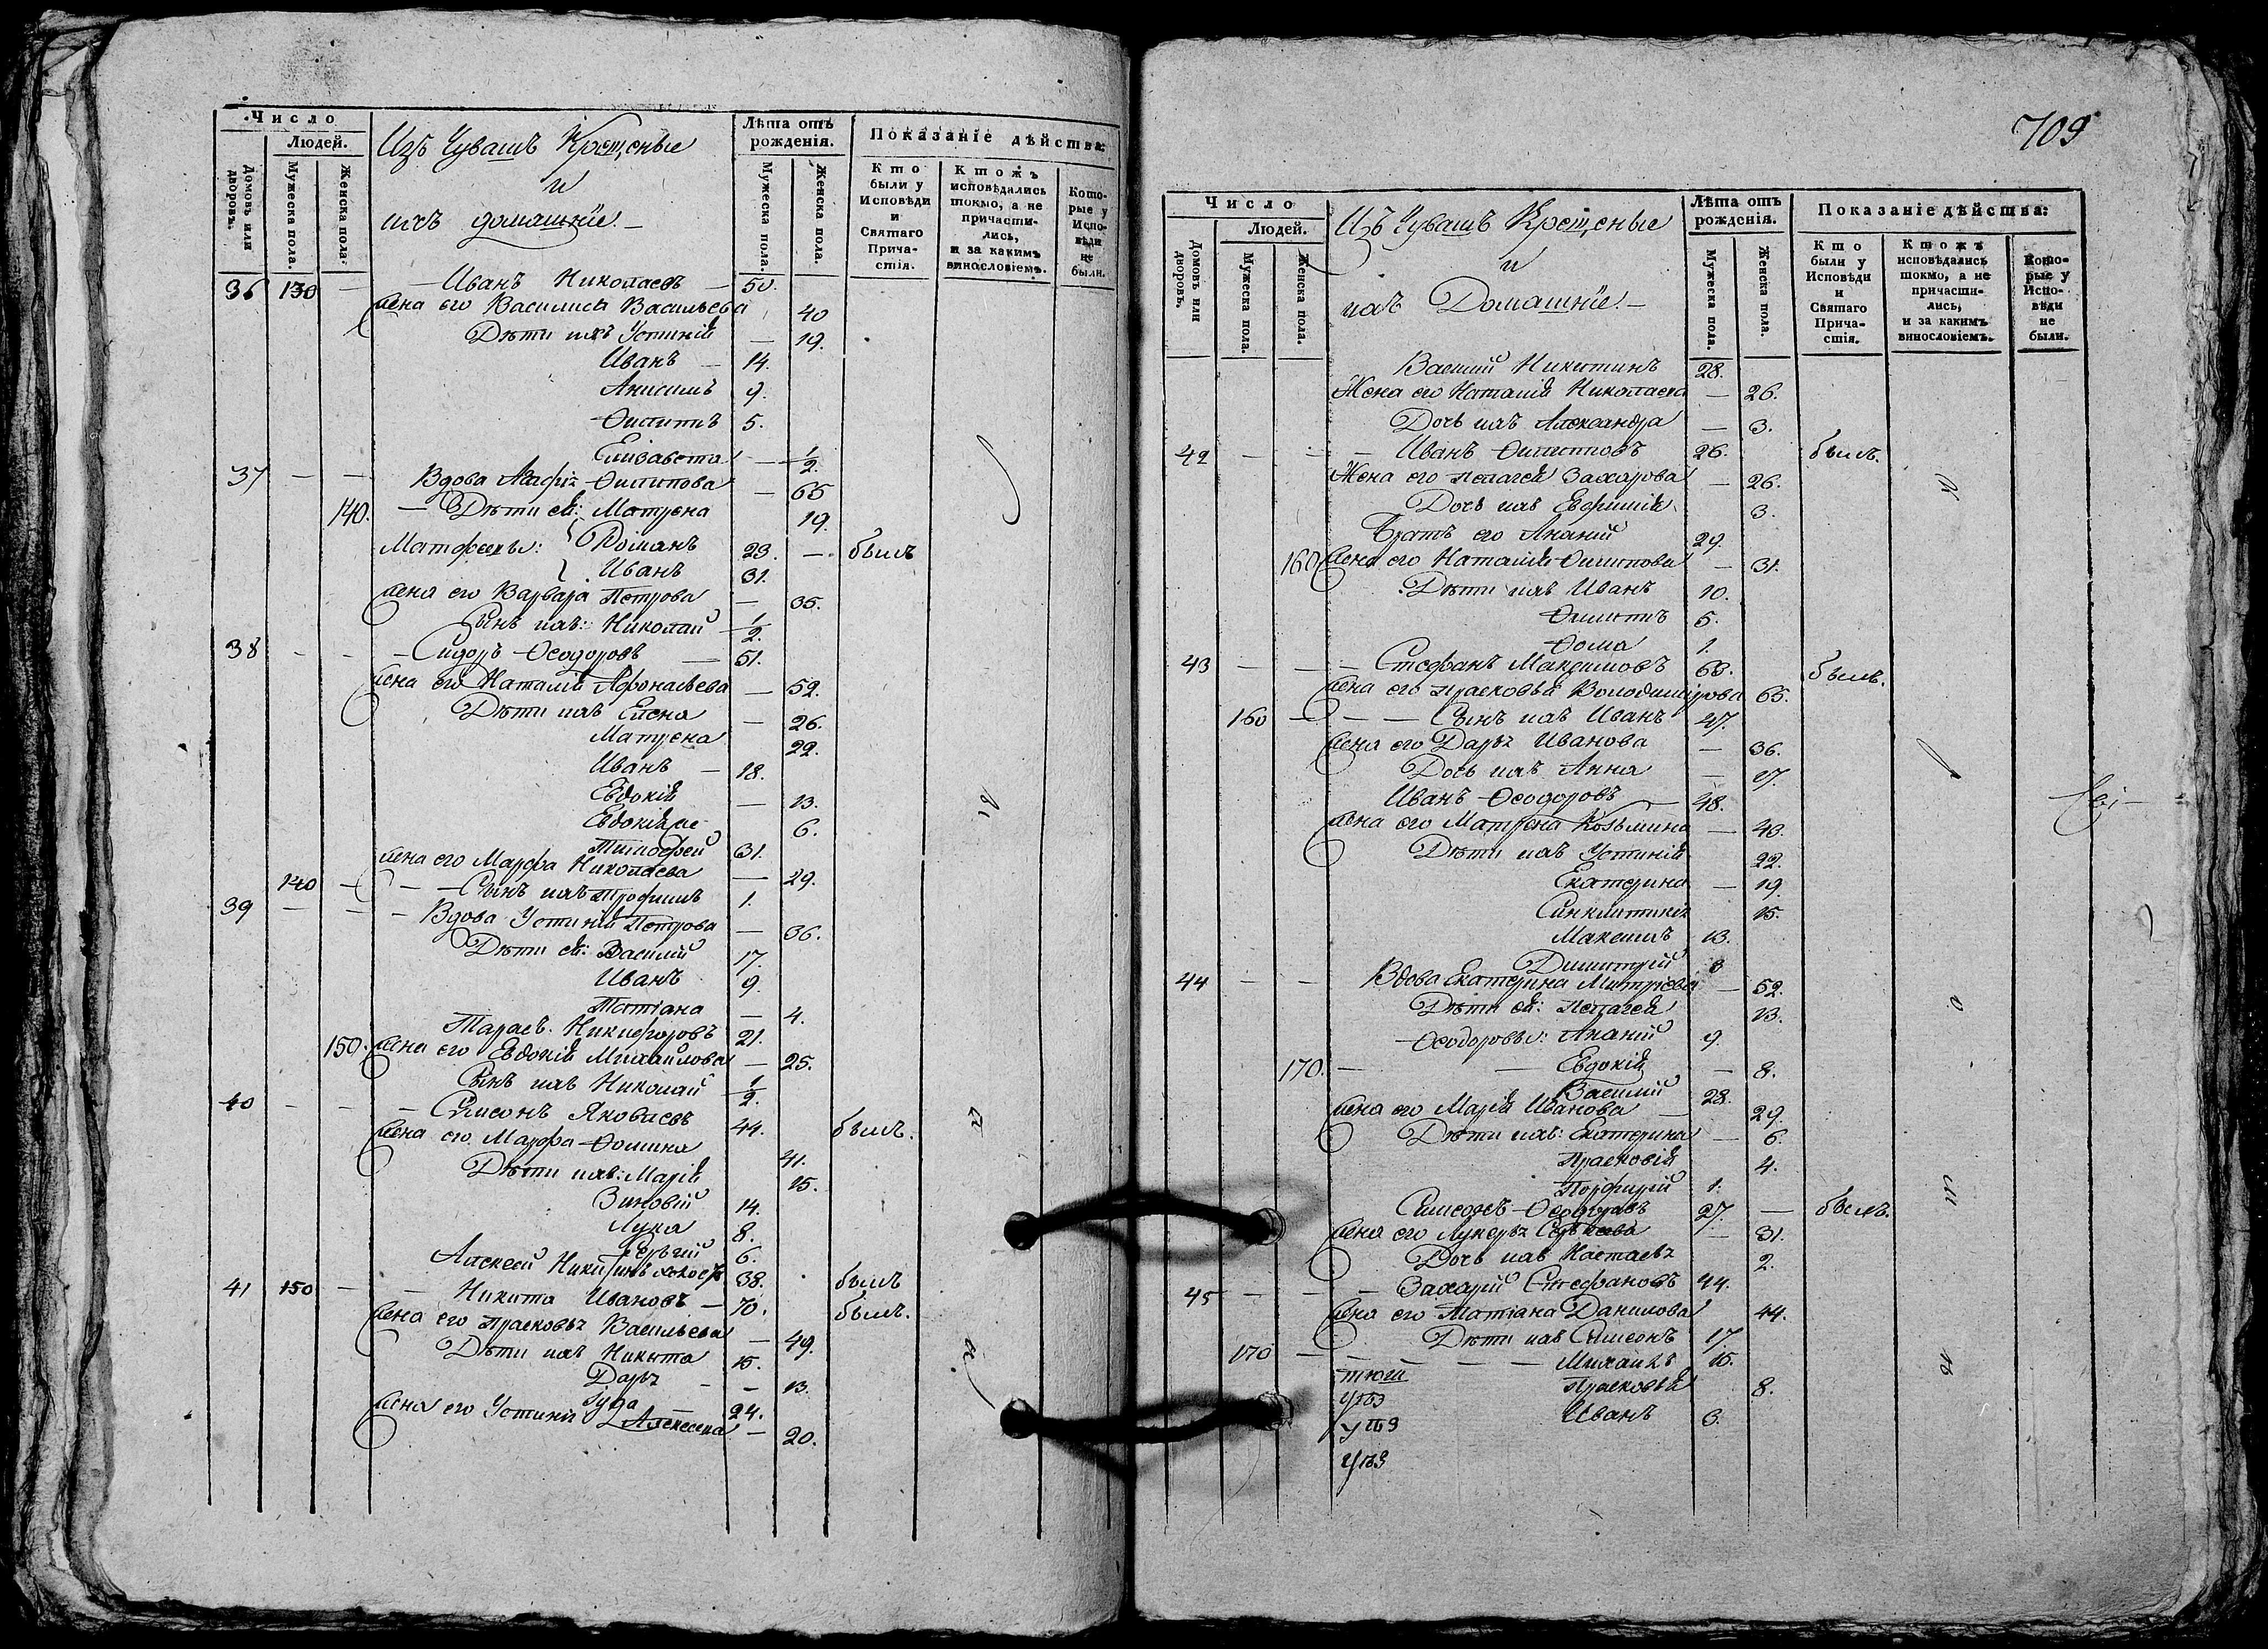 Число
Людей.
Домовъ или дворовъ.
Мужеска пола.
Женска пола.
Изъ Чувашъ Крещеные
и
ихъ домашніе. —
Лѣта отъ рожденія.
Мужеска пола.
Женска пола.
Показаніе дѣйства:
Кто были у Исповѣди и Святаго Причастія.
Ктожъ исповѣдались токмо, а не причастились, и за какимъ винословіемъ.
Которые у Исповѣди не были.
36 130 — Иванъ Николаевъ — 50.
Жена его Василиса Васильева 40
Дѣти ихъ Устинія — 19.
Иванъ — 14.
Анисимъ 9.
Филиппъ 5.
Елизавета — 1/2.
37 — — Вдова Агафія Филипова — 65
140. — Дѣти ея: Матрена 19.
Матфеевы: Романъ 23. — былъ
Иванъ 31.
Жена его Варвара Петрова — 35.
Сынъ ихъ: Николай 1/2.
38 - - — Сидоръ Ѳеодоровъ — 51.
Жена его Наталія Афонасьева — 52.
Дѣти ихъ Елена — 26.
Матрена 22.
Иванъ — 18.
Евдокія — 13.
Евдокія же 6.
Тимофей 31.
Жена его Марфа Николаева — 29.
140 — — Сынъ ихъ Трофимъ 1.
39 — — — Вдова Устинія Петрова — 36.
Дѣти ея: Василій 17.
Иванъ 9.
Татіана — 4.
Тарасъ Никифоровъ 21.
150. Жена его Евдокія Михайлова — 25.
Сынъ ихъ Николай 1/2.
40 - - — Симеонъ Яковлевъ 44. былъ.
Жена его Марфа Фомина 41.
Дѣти ихъ: Марія 15.
Зиновій 14.
Лука 8.
Сергій 6.
Алексей Никитинъ холостъ 38. былъ
41 150 — — Никита Ивановъ — 70. былъ.
Жена его Прасковья Васильева — 49.
Дѣти ихъ Никита 15.
Дарья - — 13.
Іуда 24.
Жена его Устинія Алексеева — 20.
709
Число
Людей.
Домовъ или дворовъ.
Мужеска пола.
Женска пола.
Изъ Чувашъ Крещеные
и
ихъ Домашніе. —
Лѣта отъ рожденія.
Мужеска пола.
Женска пола.
Показаніе дѣйства:
Кто были у Исповѣди и Святаго Причастія.
Ктожъ исповѣдались токмо, а не причастились, и за какимъ винословіемъ.
Которые у Исповѣди не были.
Василій Никитинъ 28.
Жена его Наталія Николаева — 26.
Дочь ихъ Александра — 3.
42 — - — Иванъ Филипповъ 26. былъ.
Жена его Пелагея Захарова — 26.
Дочь ихъ Евфимія 3.
Братъ его Ананій 29.
160 Жена его Наталія Филипова — 31.
Дѣти ихъ Иванъ 10.
Филиппъ 5.
Фома 1.
43 — — — Стефанъ Максимовъ 63. былъ.
Жена его Прасковья Володимірова 65.
160 — — — Сынъ ихъ Иванъ 47.
Жена его Дарья Иванова — 36.
Дочь ихъ Анна — 17.
Иванъ Ѳеодоровъ — 48.
Жена его Матрена Козьмина — 43.
Дѣти ихъ Устинія 22.
Екатерина — 19
Синклитикія 15.
Максимъ 13.
Димитрій
44 — — Вдова Екатерина Митріева — 52.
Дѣти ея: Пелагея 13.
Ѳеодоровы: Ананій 9.
170. — — Евдокія — 8.
Василій 28.
Жена его Марія Иванова — 29.
Дѣти ихъ: Екатерина — 6.
Прасковія 4.
Порфирій 1.
Симеонъ Ѳеодоровъ 27. — былъ.
Жена его Лукерья Сергѣева — 31.
Дочь ихъ Настасья 2.
45 — - — Захарій Стефановъ 44.
Жена его Татіана Данилова 44.
Дѣти ихъ Симеонъ 17.
170 — — — Михаилъ 15.
Прасковья 8.
Иванъ 3.